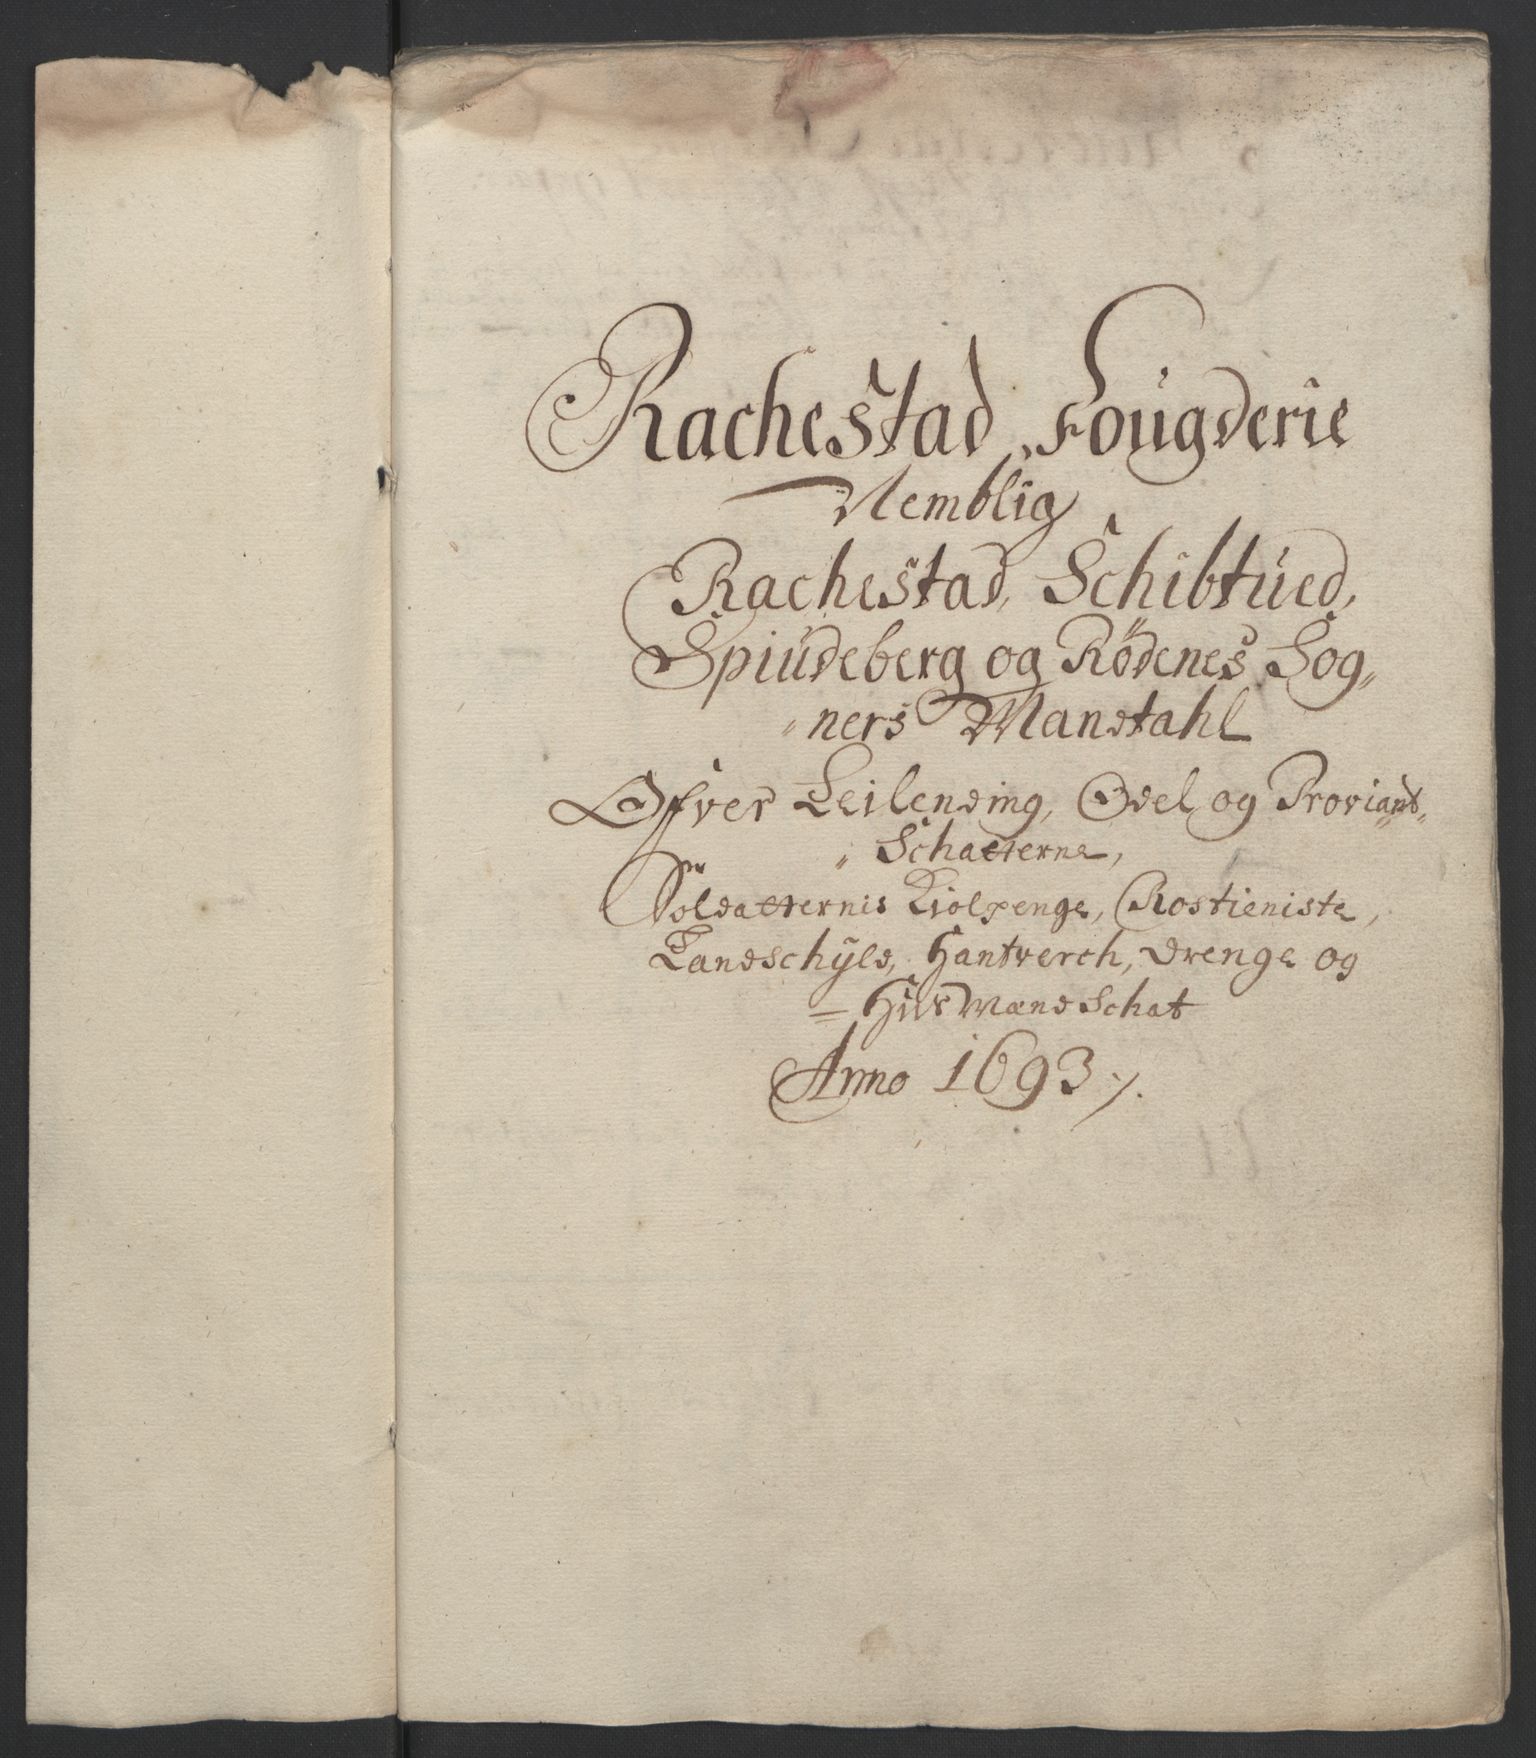 Rachestad Fougderie
Nemblig
Rachestad, Schibtued,
Spiudeberg og Rödenes Sog„
„ners Mandtahl
Offver Leilending, Odel og Proviant„
„Schatterne,
Soldatternis Kiolpenge, Rostieniste,
Landschyld, Hantverch, drenge og
= Huus Mænd Schat
Anno 1693 ·/.